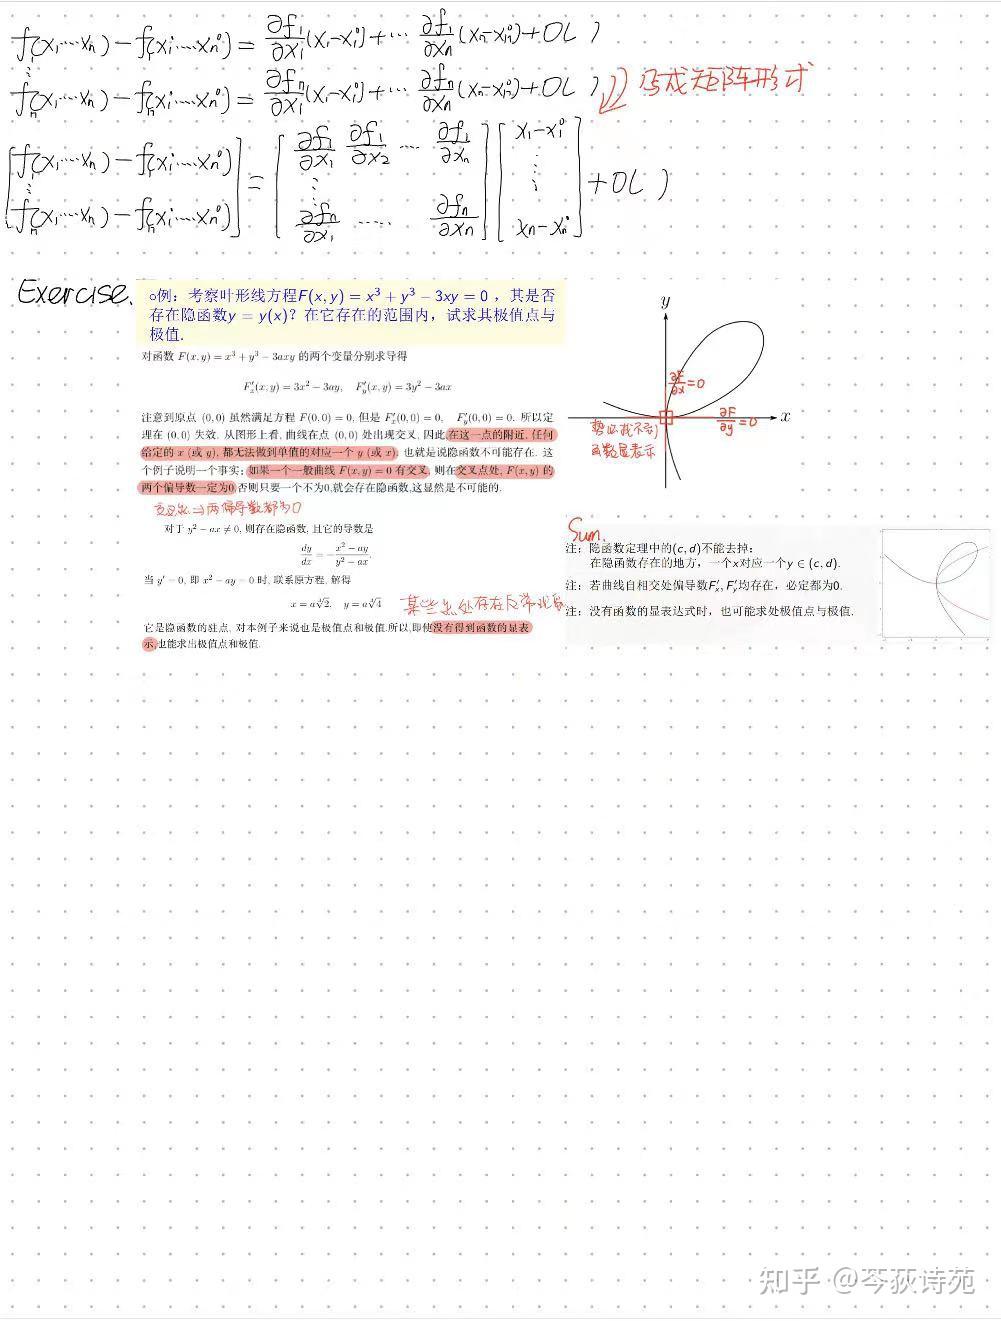 f₁(x₁…xₙ) − f₁(x₁⁰…xₙ⁰) = ∂f₁/∂x₁ (x₁−x₁⁰)+… ∂f₁/∂xₙ (xₙ−xₙ⁰)+o( )
⋮
fₙ(x₁…xₙ) − fₙ(x₁⁰…xₙ⁰) = ∂fₙ/∂x₁ (x₁−x₁⁰)+… ∂fₙ/∂xₙ (xₙ−xₙ⁰)+o( )
写成矩阵形式
[f₁(x₁…xₙ) − f₁(x₁⁰…xₙ⁰)] = [∂f₁/∂x₁ ∂f₁/∂x₂ … ∂f₁/∂xₙ] [x₁−x₁⁰] + o( )
⋮ ⋮ ⋮
[fₙ(x₁…xₙ) − fₙ(x₁⁰…xₙ⁰)] [∂fₙ/∂x₁ …… ∂fₙ/∂xₙ] [xₙ−xₙ⁰]
Exercise.
○例：考察叶形线方程F(x, y) = x³ + y³ − 3xy = 0，其是否
存在隐函数y = y(x)？在它存在的范围内，试求其极值点与
极值.
对函数 F(x, y) = x³ + y³ − 3axy 的两个变量分别求导得
F′ₓ(x, y) = 3x² − 3ay, F′ᵧ(x, y) = 3y² − 3ax
注意到原点 (0, 0) 虽然满足方程 F(0, 0) = 0, 但是 F′ₓ(0, 0) = 0, F′ᵧ(0, 0) = 0. 所以定
理在 (0, 0) 失效. 从图形上看, 曲线在点 (0, 0) 处出现交叉, 因此, 在这一点的附近, 任何
给定的 x (或 y), 都无法做到单值的对应一个 y (或 x), 也就是说隐函数不可能存在. 这
个例子说明一个事实: 如果一个一般曲线 F(x, y) = 0 有交叉, 则在交叉点处, F(x, y) 的
两个偏导数一定为0,否则只要一个不为0,就会存在隐函数,这显然是不可能的.
交叉点 ⇒ 两偏导数都为0
对于 y² − ax ≠ 0, 则存在隐函数, 且它的导数是
dy/dx = − (x² − ay)/(y² − ax).
当 y′ = 0, 即 x² − ay = 0 时, 联系原方程, 解得
x = a∛2, y = a∛4
某些点处存在反常现象
它是隐函数的驻点, 对本例子来说也是极值点和极值.所以,即使没有得到函数的显表
示,也能求出极值点和极值.
y
x
∂F/∂x = 0
∂F/∂y = 0
找不到
函数显表示
Sum.
注：隐函数定理中的(c, d)不能去掉：
在隐函数存在的地方，一个x对应一个y ∈ (c, d).
注：若曲线自相交处偏导数F′ₓ, F′ᵧ均存在，必定都为0.
注：没有函数的显表达式时，也可能求处极值点与极值.
知乎 @芩荻诗苑